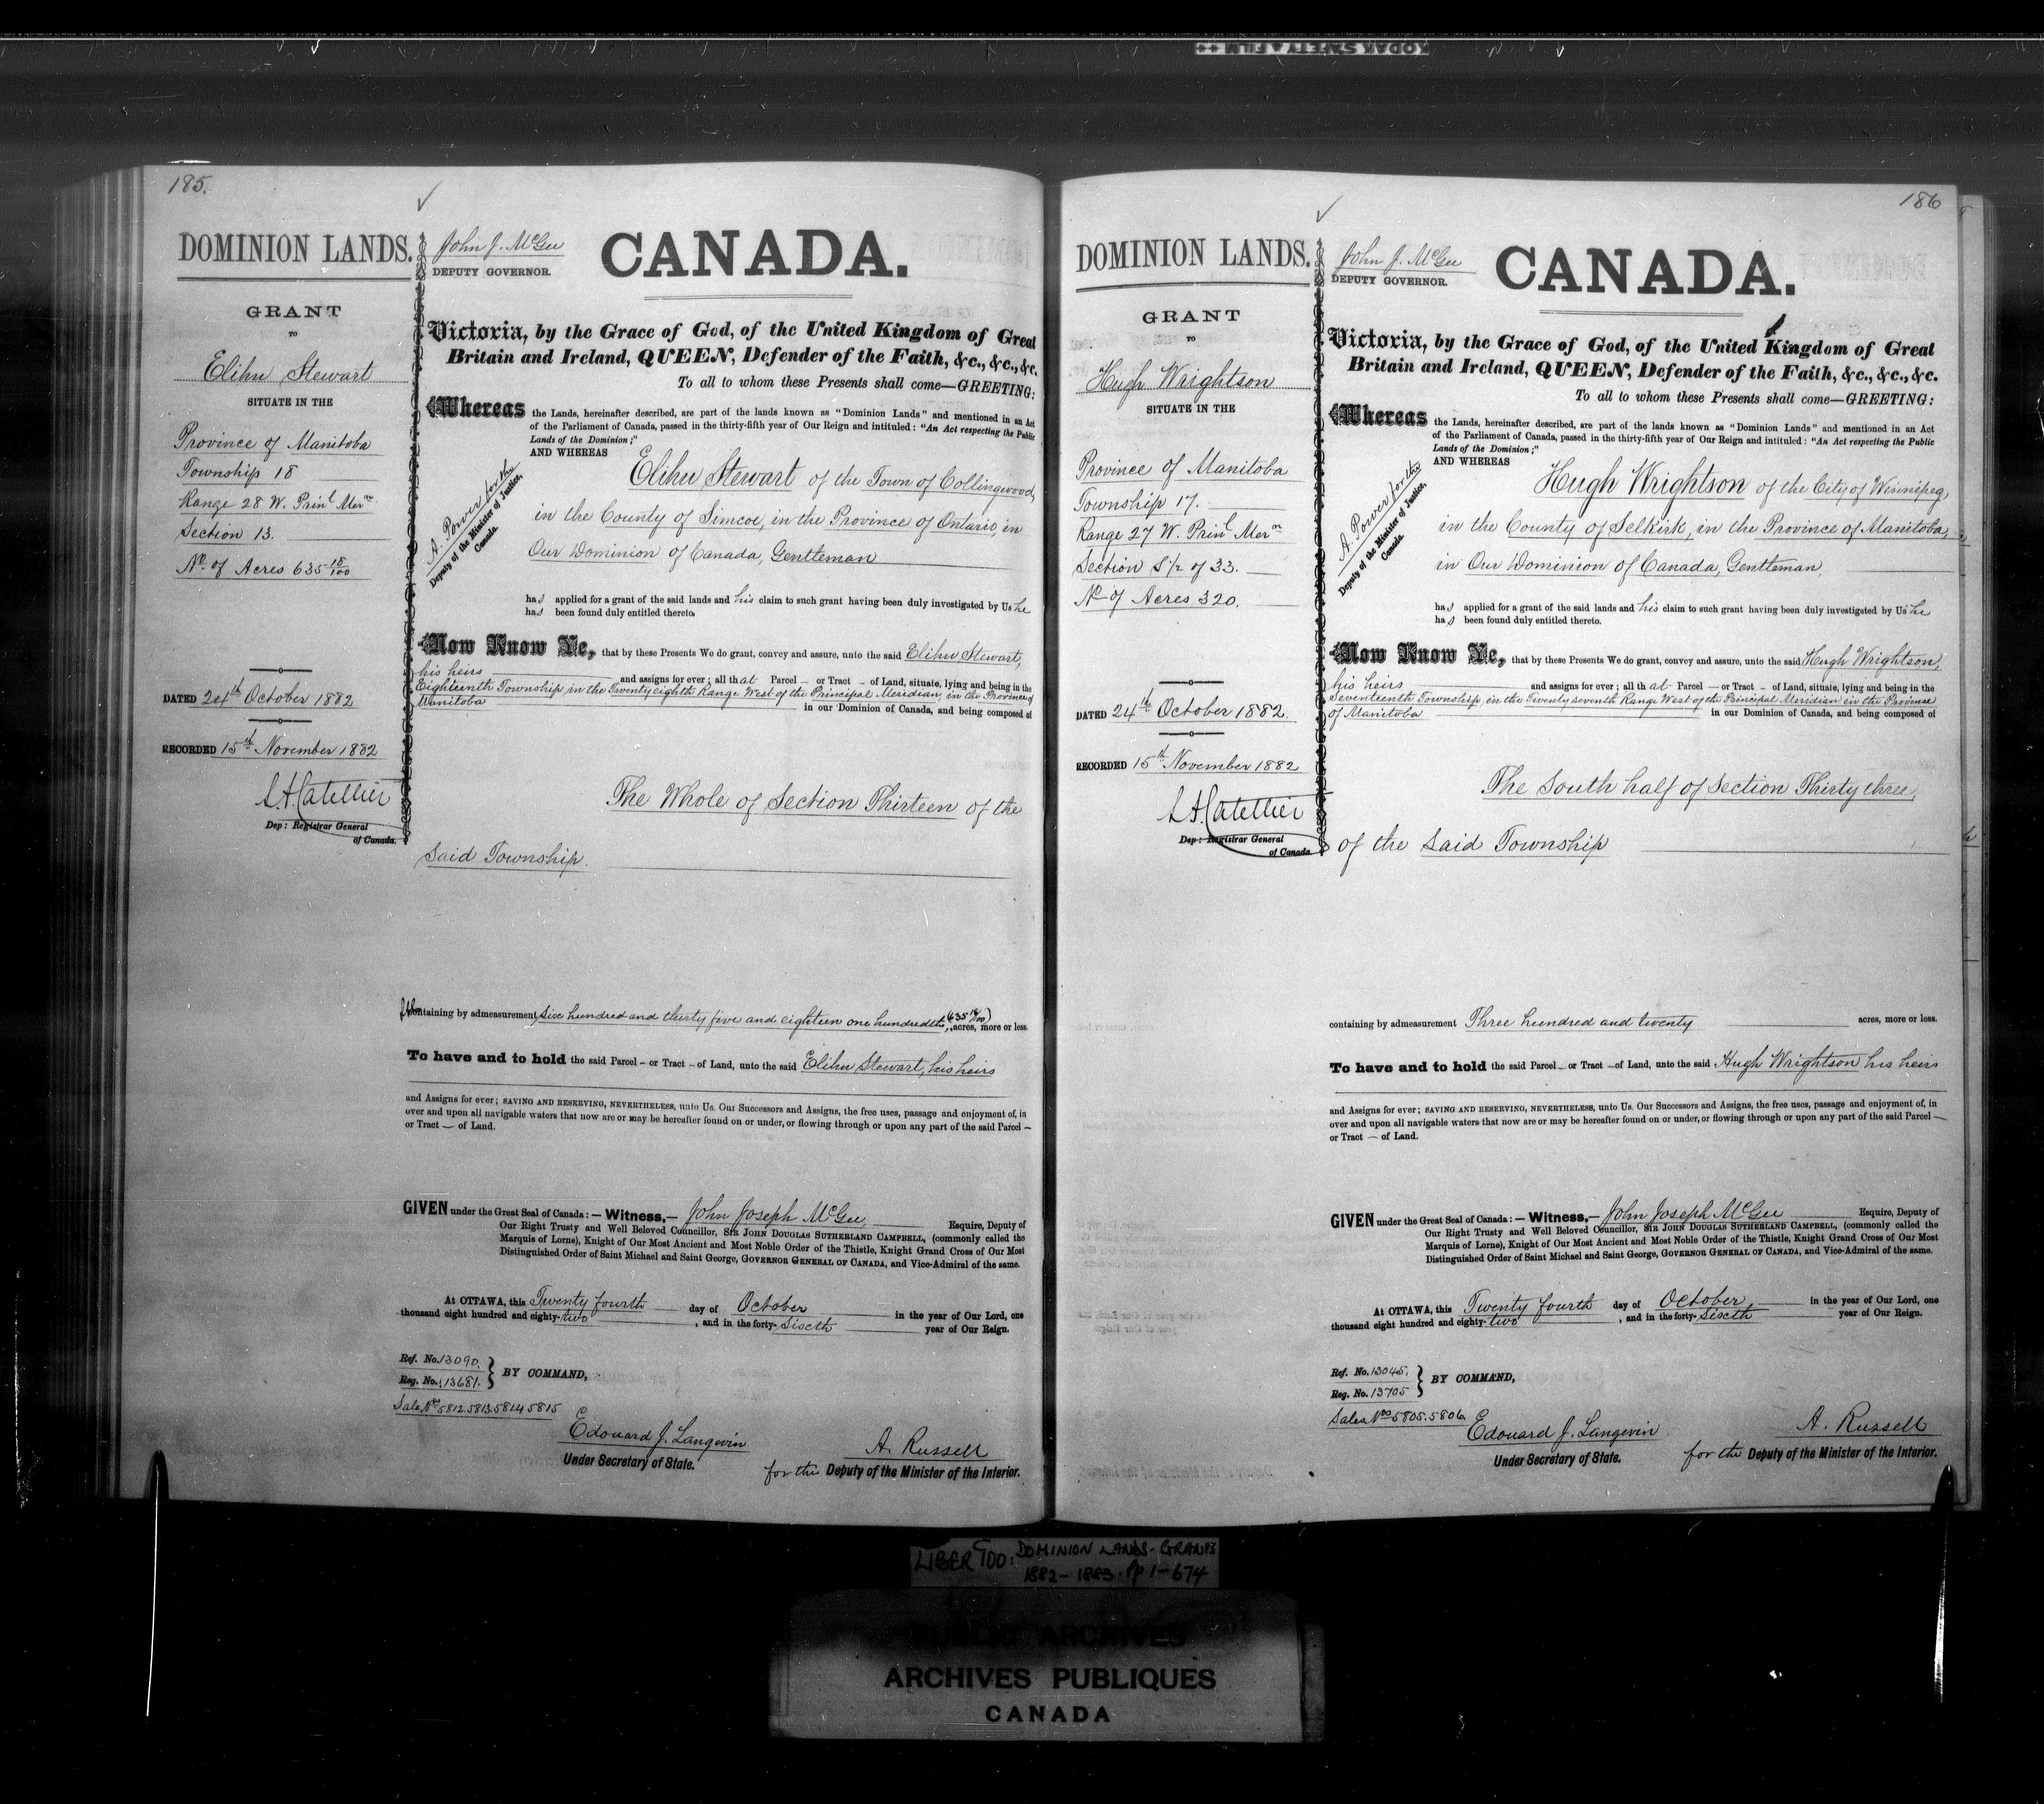 KODAK SAFETY FILM
185.
DOMINION LANDS.
GRANT
TO
Elihu Stewart
SITUATE IN THE
Province of Manitoba
Township 18
Range 28 W. Prinl Mern
Section 13.
No. of Acres 635 18/100
DATED 24th October 1882
RECORDED 15th November 1882
L. A. Catellier
Dep: Registrar General
of Canada.
John J. McGee
DEPUTY GOVERNOR.
CANADA.
Victoria, by the Grace of God, of the United Kingdom of Great
Britain and Ireland, QUEEN, Defender of the Faith, &c., &c., &c.
To all to whom these Presents shall come—GREETING:
Whereas the Lands, hereinafter described, are part of the lands known as "Dominion Lands" and mentioned in an Act
of the Parliament of Canada, passed in the thirty-fifth year of Our Reign and intituled: "An Act respecting the Public
Lands of the Dominion;"
AND WHEREAS
A. Power for the
Deputy of the Minister of Justice,
Canada.
Elihu Stewart of the Town of Collingwood,
in the County of Simcoe, in the Province of Ontario, in
Our Dominion of Canada, Gentleman
has applied for a grant of the said lands and his claim to such grant having been duly investigated by Us he
has been found duly entitled thereto.
Now Know Ye, that by these Presents We do grant, convey and assure, unto the said Elihu Stewart,
his heirs and assigns for ever; all that Parcel — or Tract — of Land, situate, lying and being in the
Eighteenth Township, in the Twenty eighth Range West of the Principal Meridian, in the Province of
Manitoba in our Dominion of Canada, and being composed of
The Whole of Section Thirteen of the
said Township.
containing by admeasurement Six hundred and thirty five and eighteen one hundredths, (635 18/100) acres, more or less.
To have and to hold the said Parcel — or Tract — of Land, unto the said Elihu Stewart, his heirs
and Assigns for ever; SAVING AND RESERVING, NEVERTHELESS, unto Us, Our Successors and Assigns, the free uses, passage and enjoyment of, in
over and upon all navigable waters that now are or may be hereafter found on or under, or flowing through or upon any part of the said Parcel —
or Tract — of Land.
GIVEN under the Great Seal of Canada: — Witness,— John Joseph McGee, Esquire, Deputy of
Our Right Trusty and Well Beloved Councillor, SIR JOHN DOUGLAS SUTHERLAND CAMPBELL, (commonly called the
Marquis of Lorne), Knight of Our Most Ancient and Most Noble Order of the Thistle, Knight Grand Cross of Our Most
Distinguished Order of Saint Michael and Saint George, GOVERNOR GENERAL OF CANADA, and Vice-Admiral of the same.
At OTTAWA, this Twenty fourth day of October in the year of Our Lord, one
thousand eight hundred and eighty-two, and in the forty-sixth year of Our Reign.
Ref. No. 13090.
Reg. No. 13681.
BY COMMAND,
Sale Nos 5812.5813.5814 5815
Edouard J. Langevin
Under Secretary of State.
A. Russell
for the Deputy of the Minister of the Interior.
186
DOMINION LANDS.
GRANT
TO
Hugh Wrightson
SITUATE IN THE
Province of Manitoba
Township 17.
Range 27 W. Prinl Mern
Section S 1/2 of 33.
No of Acres 320.
DATED 24th October 1882.
RECORDED 15th November 1882
L. A. Catellier
Dep: Registrar General
of Canada.
John J. McGee
DEPUTY GOVERNOR.
CANADA.
Victoria, by the Grace of God, of the United Kingdom of Great
Britain and Ireland, QUEEN, Defender of the Faith, &c., &c., &c.
To all to whom these Presents shall come—GREETING:
Whereas the Lands, hereinafter described, are part of the lands known as "Dominion Lands" and mentioned in an Act
of the Parliament of Canada, passed in the thirty-fifth year of Our Reign and intituled: "An Act respecting the Public
Lands of the Dominion;"
AND WHEREAS
A. Power for the
Deputy of the Minister of Justice,
Canada.
Hugh Wrightson of the City of Winnipeg,
in the County of Selkirk, in the Province of Manitoba,
in Our Dominion of Canada, Gentleman,
has applied for a grant of the said lands and his claim to such grant having been duly investigated by Us he
has been found duly entitled thereto.
Now Know Ye, that by these Presents We do grant, convey and assure, unto the said Hugh Wrightson,
his heirs and assigns for ever; all that Parcel — or Tract — of Land, situate, lying and being in the
Seventeenth Township, in the Twenty seventh Range West of the Principal Meridian in the Province
of Manitoba in our Dominion of Canada, and being composed of
The South half of Section Thirty three,
of the said Township
containing by admeasurement Three hundred and twenty acres, more or less.
To have and to hold the said Parcel — or Tract — of Land, unto the said Hugh Wrightson his heirs
and Assigns for ever; SAVING AND RESERVING, NEVERTHELESS, unto Us, Our Successors and Assigns, the free uses, passage and enjoyment of, in
over and upon all navigable waters that now are or may be hereafter found on or under, or flowing through or upon any part of the said Parcel —
or Tract — of Land.
GIVEN under the Great Seal of Canada: — Witness,— John Joseph McGee Esquire, Deputy of
Our Right Trusty and Well Beloved Councillor, SIR JOHN DOUGLAS SUTHERLAND CAMPBELL, (commonly called the
Marquis of Lorne), Knight of Our Most Ancient and Most Noble Order of the Thistle, Knight Grand Cross of Our Most
Distinguished Order of Saint Michael and Saint George, GOVERNOR GENERAL OF CANADA, and Vice-Admiral of the same.
At OTTAWA, this Twenty fourth day of October in the year of Our Lord, one
thousand eight hundred and eighty-two, and in the forty-sixth year of Our Reign.
Ref. No. 13045.
Reg. No. 13705
BY COMMAND,
Sales Nos 5805.5806.
Edouard J. Langevin
Under Secretary of State.
A. Russell
for the Deputy of the Minister of the Interior.
LIBER 900: DOMINION LANDS-GRANTS
1882-1883. Pp 1-674
PUBLIC ARCHIVES
ARCHIVES PUBLIQUES
CANADA